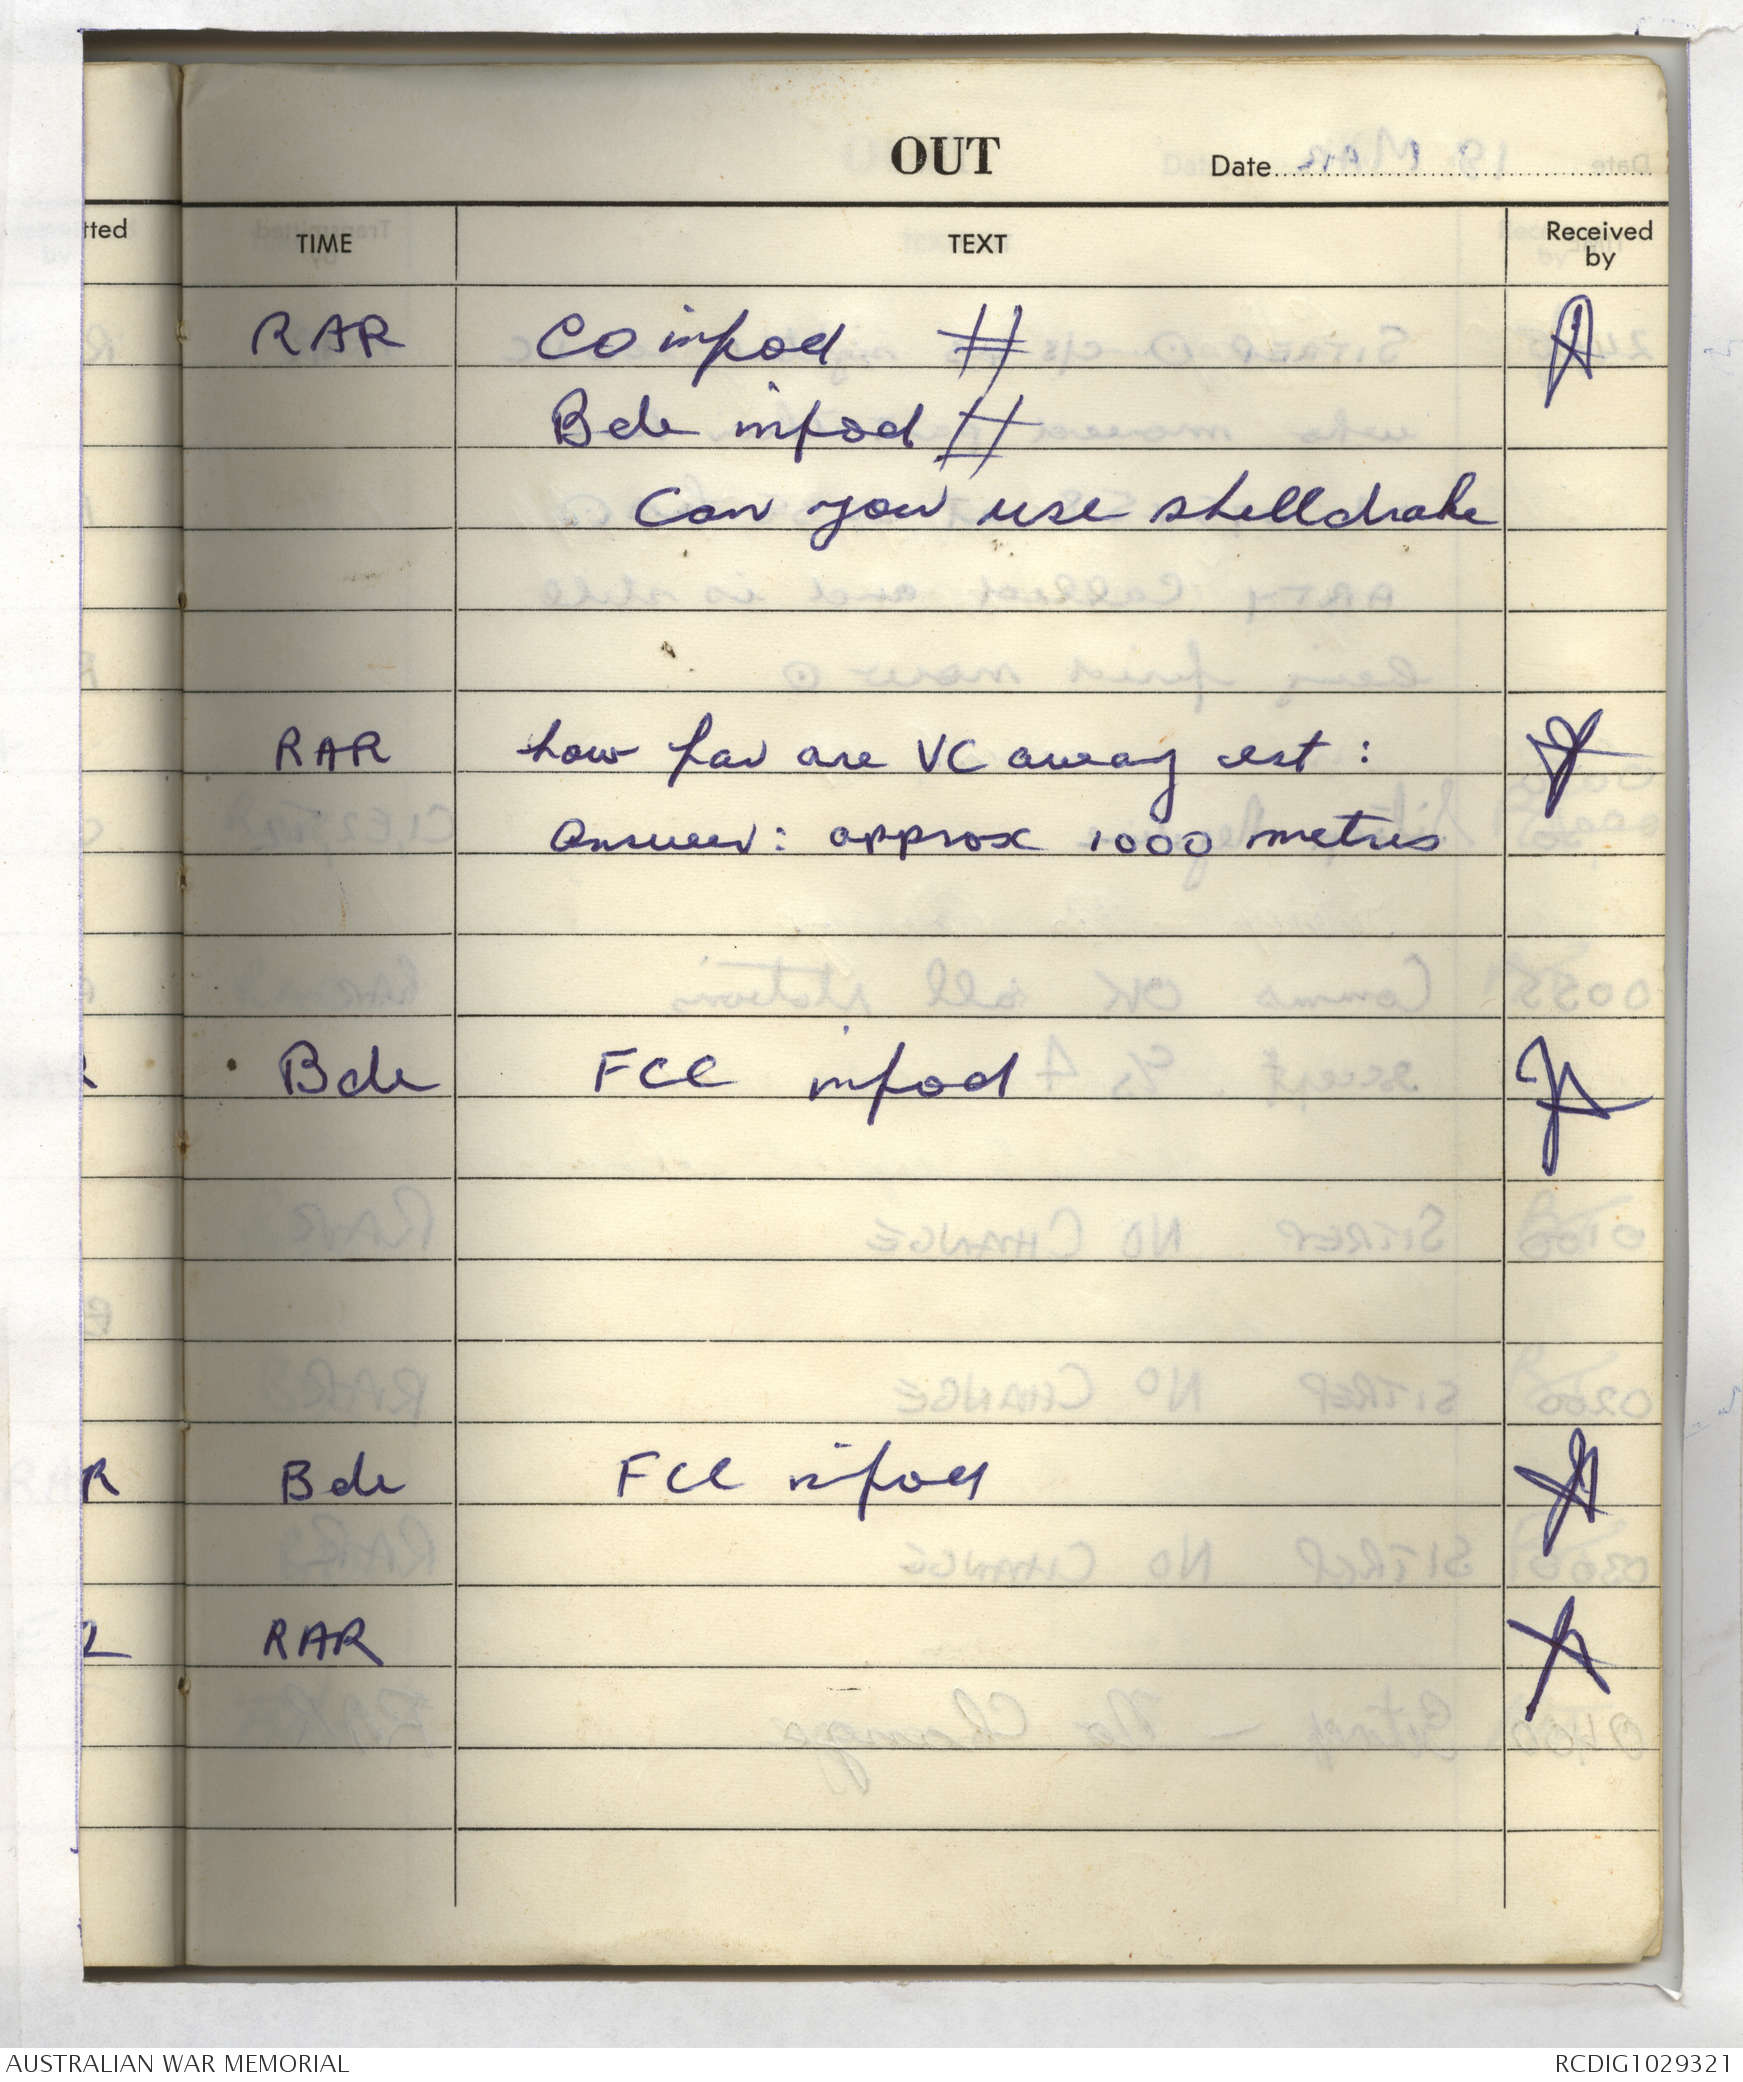 OUT
Date
tted
TIME
TEXT
Received
by
RAR CO infod #
Bde infod #
Can you use shelldrake
RAR how far are VC away est :
Answer : approx 1000 metres
Bde FCC infod
R Bde FCC infod
RAR
AUSTRALIAN WAR MEMORIAL
RCDIG1029321